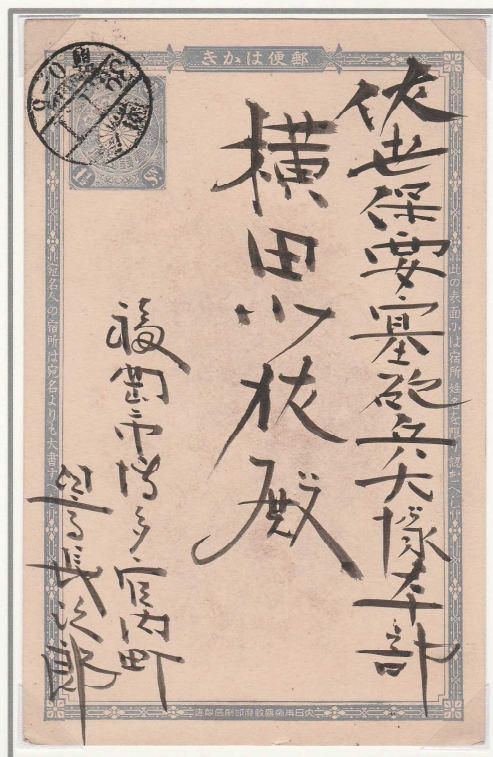 郵便はかき
佐世保要塞砲兵大隊本部
横田小枝殿
福岡市博多官内町
長次郎
此の表面には宿所姓名を限り認むへし
宛名人の宿所は宛名よりも大書すへし
大日本帝國政府印刷局製造
1½ Sn.